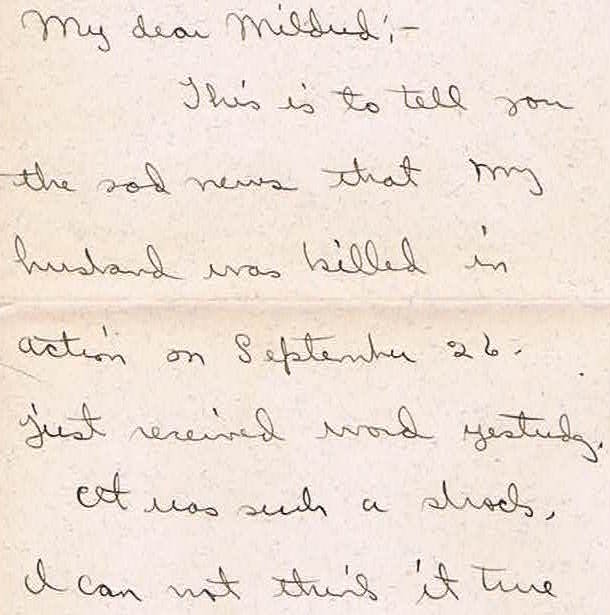 My dear Mildred;-
This is to tell you
the sad news that my
husband was killed in
action on September 26.
just received word yesterday.
It was such a shock,
I can not think it true